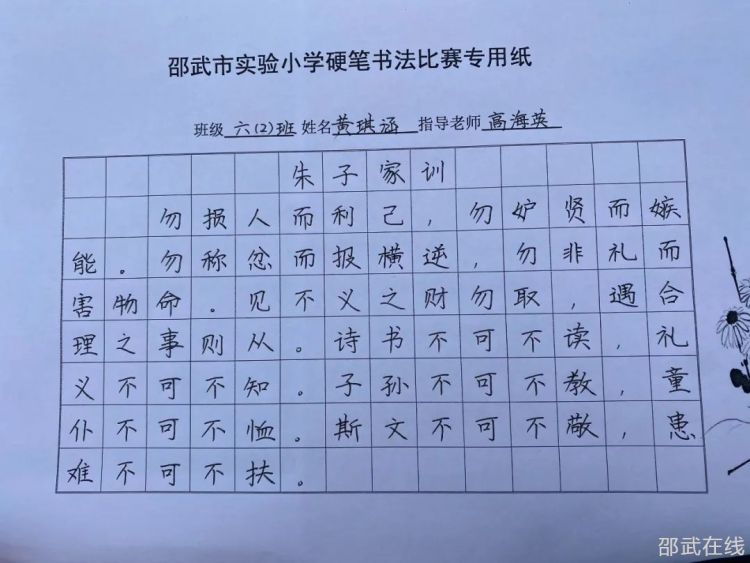 邵武市实验小学硬笔书法比赛专用纸
班级 六(2)班 姓名 黄琪涵 指导老师 高海英
朱子家训
勿损人而利己，勿妒贤而嫉
能。勿称忿而报横逆，勿非礼而
害物命。见不义之财勿取，遇合
理之事则从。诗书不可不读，礼
义不可不知。子孙不可不教，童
仆不可不恤。斯文不可不敬，患
难不可不扶。
邵武在线